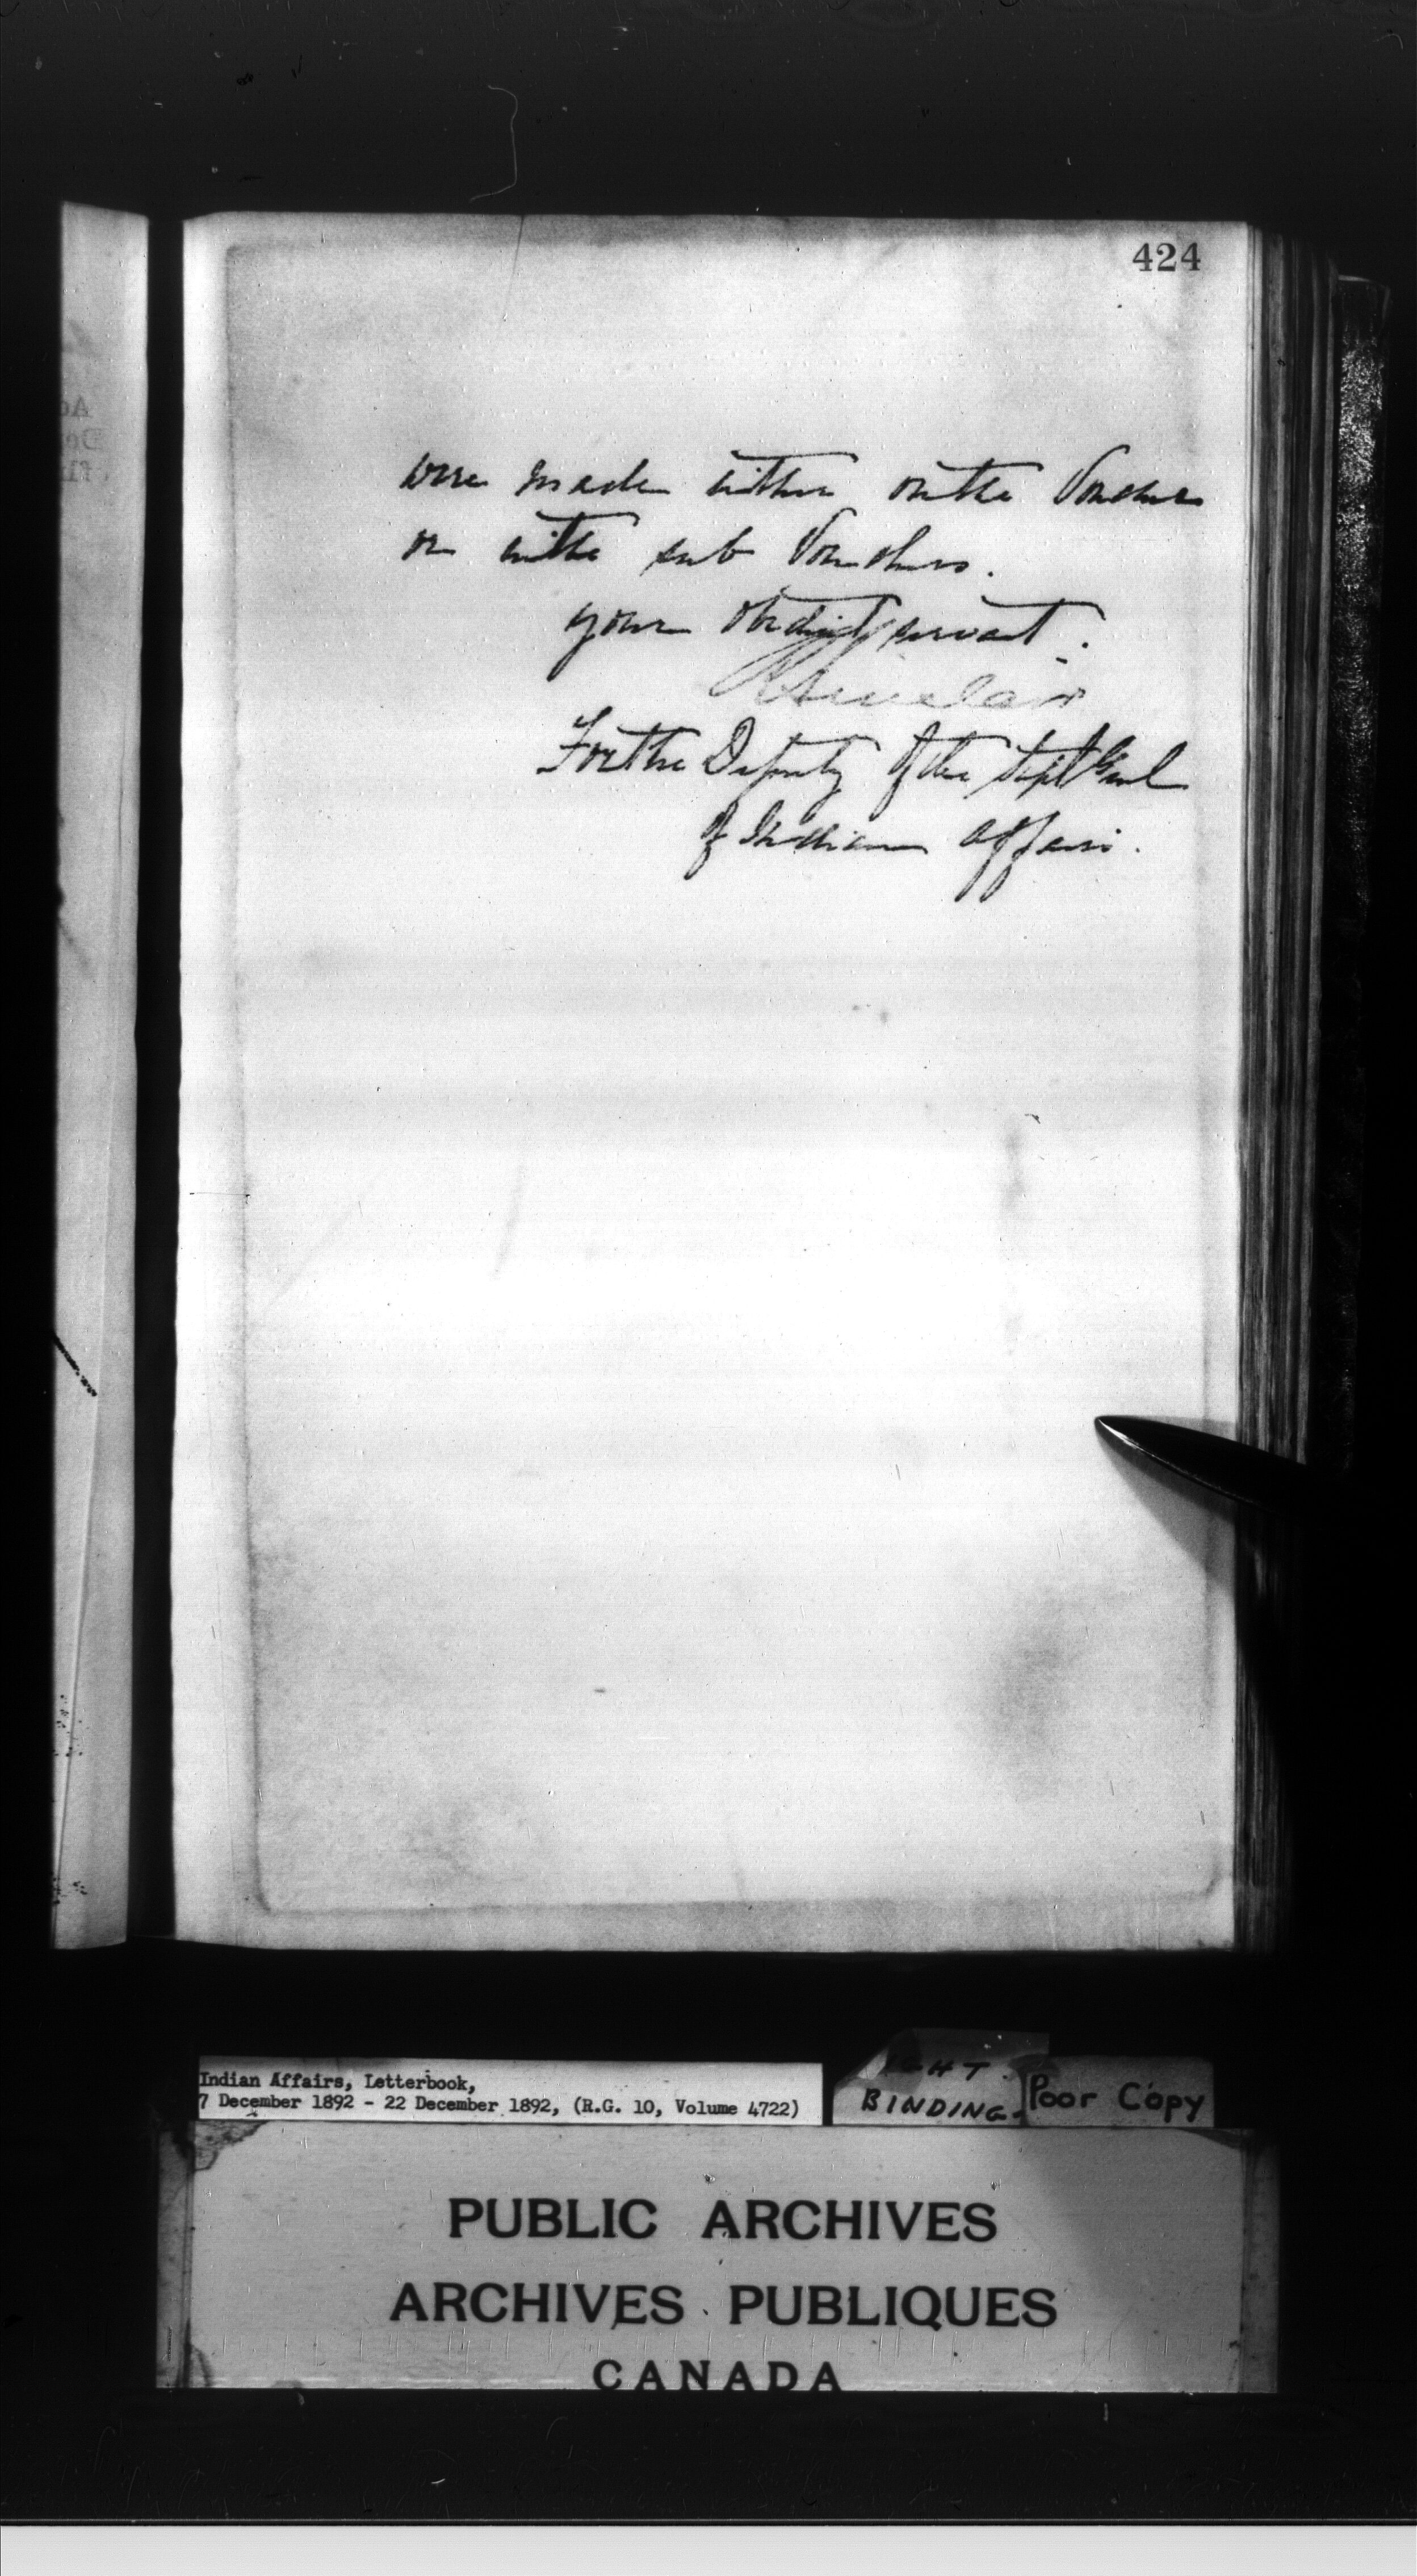 424
were made either on the Voucher
or in the sub Vouchers.
your obedient servant.
R Sinclair
For the Deputy of the Supt Genl
of Indian Affairs.
Indian Affairs, Letterbook,
7 December 1892 - 22 December 1892, (R.G. 10, Volume 4722)
BINDING
Poor Copy
PUBLIC ARCHIVES
ARCHIVES PUBLIQUES
CANADA